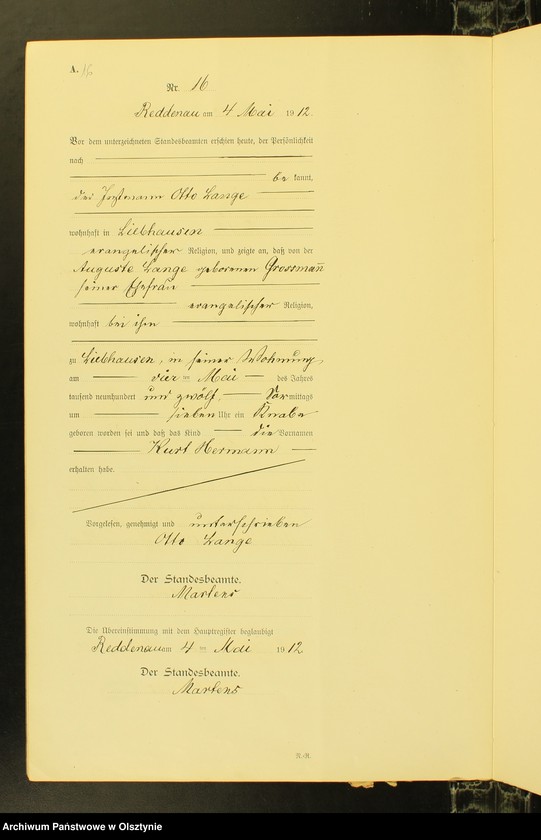 A. 16
Nr. 16
Reddenau am 4 Mai 1912.
Vor dem unterzeichneten Standesbeamten erschien heute, der Persönlichkeit
nach
be kannt,
Otto Lange
wohnhaft in Liebhausen
evangelischer Religion, und zeigte an, daß von der
Auguste Lange geborenen Grossmann
seiner Ehefrau
evangelischer Religion,
wohnhaft bei ihm
zu Liebhausen, in seiner Wohnung,
am vier ten Mai des Jahres
tausend neunhundert und zwölf, Vor mittags
um sieben Uhr ein Knabe
geboren worden sei und daß das Kind die Vornamen
Kurt Hermann
erhalten habe.
Vorgelesen, genehmigt und unterschrieben
Otto Lange
Der Standesbeamte.
Martens
Die Übereinstimmung mit dem Hauptregister beglaubigt
Reddenau am 4 ten Mai 1912
Der Standesbeamte.
Martens
Archiwum Państwowe w Olsztynie